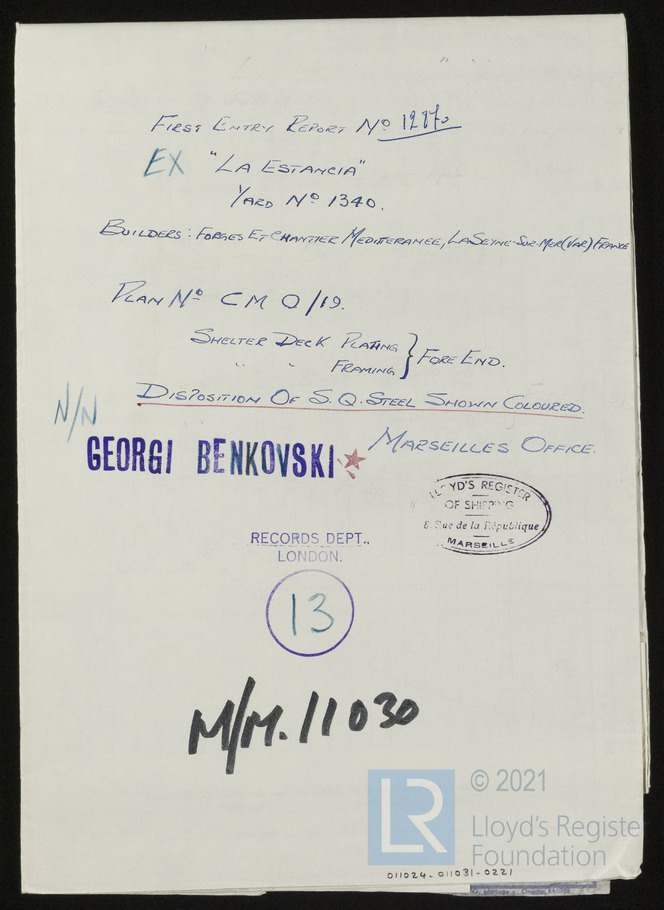 First Entry Report No 12870
EX "La Estancia"
Yard No 1340.
Builders: Forges Et Chantier Mediterranee, La Seyne-Sur-Mer (Var) France
Plan No C M O/19.
Shelter Deck Plating
" " Framing } Fore End.
Disposition Of S.Q. Steel Shown Coloured.
N/N
GEORGI BENKOVSKI
Marseilles Office.
LLOYD'S REGISTER
OF SHIPPING
8, Rue de la République
MARSEILLE
RECORDS DEPT.,
LONDON.
13
M/M. 11030
© 2021
LR
Lloyd's Register
Foundation
011024-011031-0221